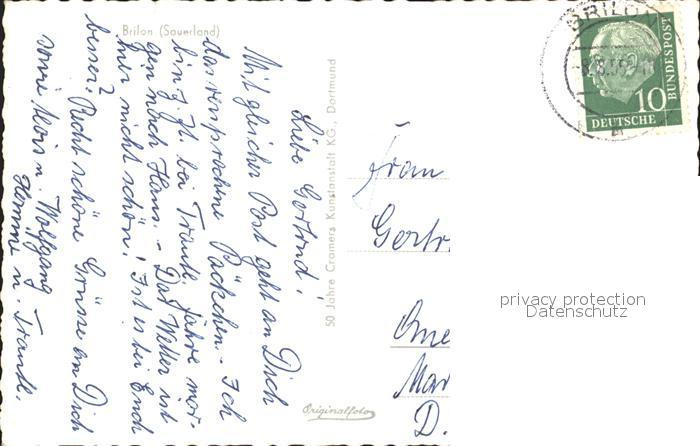 Brilon (Sauerland)
Liebe Gertrud!
Mit gleicher Post geht an Dich
das versprochene Päckchen. - Ich
bin z. Zt. bei Traute, fahre mor-
gen nach Haus. - Das Wetter ist
hier nicht schön! Ist es bei Euch
besser? Recht schöne Grüsse an Dich
sowie u. Wolfgang
u. Traute.
50 Jahre Cramers Kunstanstalt KG., Dortmund
Originalfoto
BRILON
DEUTSCHE
BUNDESPOST
10
Frau
Gertr
Mar
D.
privacy protection
Datenschutz